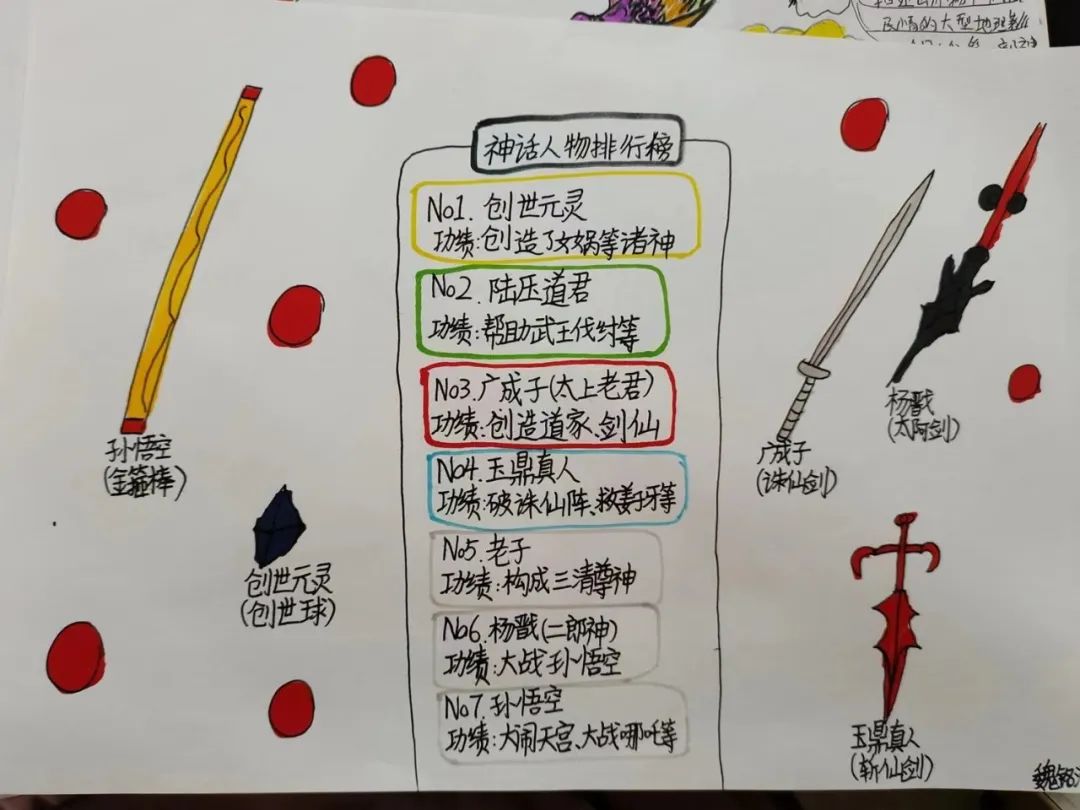 及情的大型地理
神话人物排行榜
No1.创世元灵
功绩:创造了女娲等诸神
No2.陆压道君
功绩:帮助武王伐纣等
No3.广成子(太上老君)
功绩:创造道家、剑仙
No4.玉鼎真人
功绩:破诛仙阵、救姜子牙等
No5.老子
功绩:构成三清尊神
No6.杨戬(二郎神)
功绩:大战孙悟空
No7.孙悟空
功绩:大闹天宫、大战哪吒等
孙悟空
(金箍棒)
创世元灵
(创世球)
杨戬
(太阿剑)
广成子
(诛仙剑)
玉鼎真人
(斩仙剑)
魏